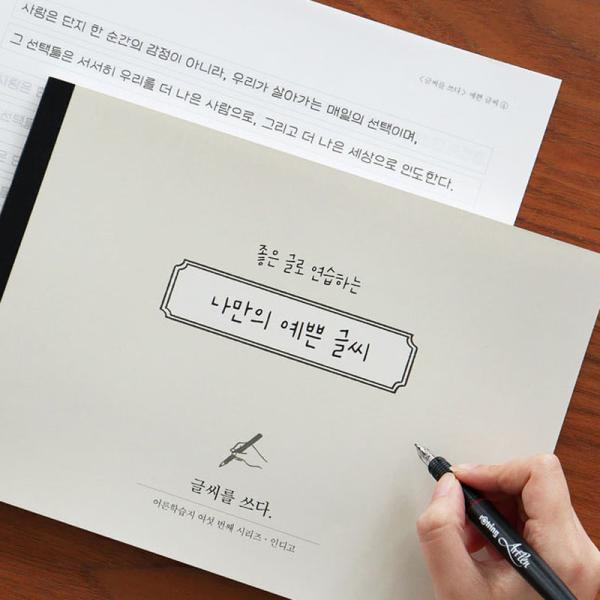 사람은 단지 한 순간의 감정이 아니라, 우리가 살아가는 매일의 선택이며,
<글씨를 쓰다> 예쁜 글씨 ④
그 선택들은 서서히 우리를 더 나은 사람으로, 그리고 더 나은 세상으로 인도한다.
좋은 글로 연습하는
나만의 예쁜 글씨
글씨를 쓰다.
어른학습지 여섯 번째 시리즈 · 인디고
rotring ArtPen